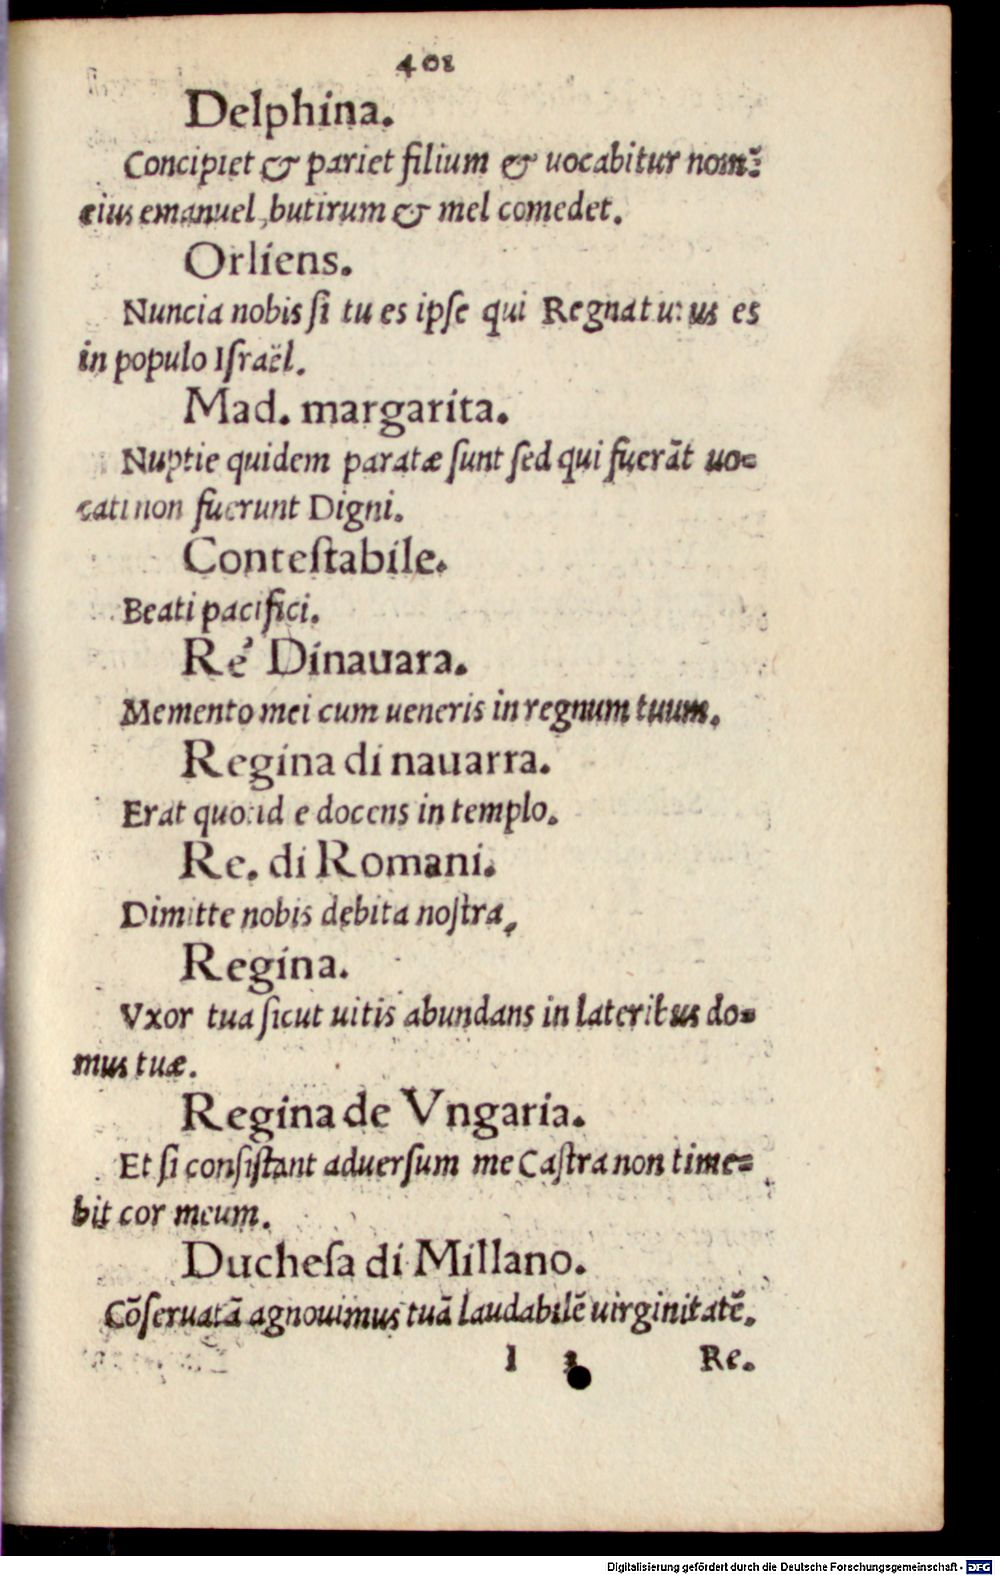 401
Delphina.
Concipiet & pariet filium & uocabitur nom̃:
eius emanuel, butirum & mel comedet.
Orliens.
Nuncia nobis ſi tu es ipſe qui Regnaturus es
in populo Iſraël.
Mad. margarita.
Nuptie quidem paratæ ſunt ſed qui fuerãt uo=
cati non fuerunt Digni.
Conteſtabile.
Beati pacifici.
Re Dinauara.
Memento mei cum ueneris in regnum tuum.
Regina di nauarra.
Erat quotid e docens in templo.
Re. di Romani.
Dimitte nobis debita noſtra,
Regina.
Vxor tua ſicut uitis abundans in lateribus do=
mus tuæ.
Regina de Vngaria.
Et ſi conſiſtant aduerſum me Caſtra non time=
bit cor meum.
Ducheſa di Millano.
Cõſeruatã agnouimus tuã laudabilẽ uirginitatẽ.
l Re.
Digitalisierung gefördert durch die Deutsche Forschungsgemeinschaft - DFG